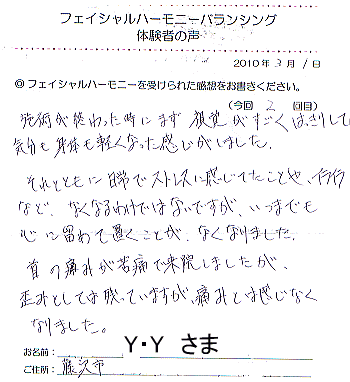 フェイシャルハーモニーバランシング
体験者の声
2010年3月1日
◎フェイシャルハーモニーを受けられた感想をお書きください。
(今回 2 回目)
施術が終わった時にまず視覚がすごくはっきりして
気分も身体も軽くなった感じがしました。
それとともに日常でストレスに感じてたことや、イライラ
など、なくなるわけではないですが、いつまでも
心に留めて置くことが、なくなりました。
首の痛みが苦痛で来院しましたが、
歪みとしては残っていますが、痛みとは感じなく
なりました。
お名前: Y・Y さま
ご住所: 藤沢市